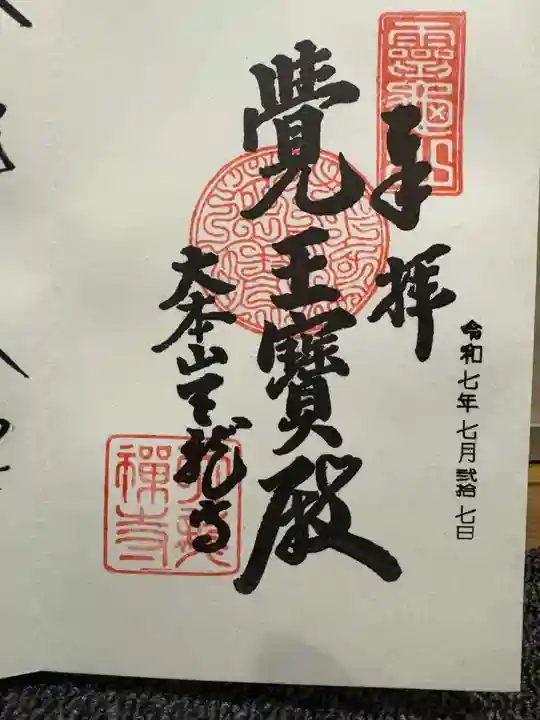 令和七年 七月 弐拾 七日
靈龜山
奉拝
覺王寶殿
大本山天龍寺
天龍禪寺